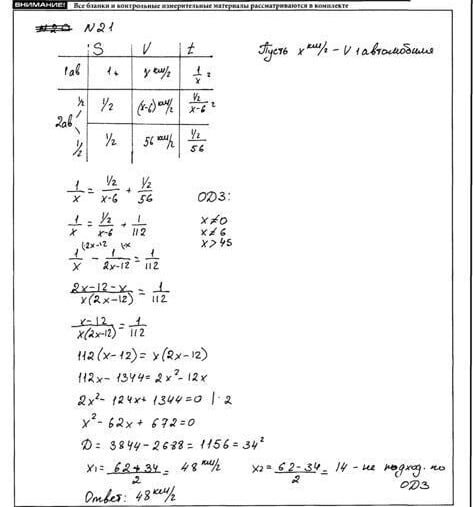 ВНИМАНИЕ! Все бланки и контрольные измерительные материалы рассматриваются в комплекте
N21
S V t
Пусть x км/г - V 1 автомобиля
1ав 1 x км/г 1/x г
1/2 1/2 (x-6) км/г 1/2/x-6 г
2ав
1/2 1/2 56 км/г 1/2/56
1/x = 1/2/x-6 + 1/2/56 ОДЗ:
1/x = 1/2/x-6 + 1/112 x≠0
x≠6
x>45
(2x-12 (x
1/x - 1/2x-12 = 1/112
2x-12-x/x(2x-12) = 1/112
x-12/x(2x-12) = 1/112
112(x-12) = x(2x-12)
112x - 1344 = 2x²-12x
2x²-124x+1344=0 |·2
x²-62x+672=0
D = 3844-2688=1156=34²
x1 = 62+34/2 = 48 км/г x2 = 62-34/2 = 14 - не подход. по
ОДЗ
Ответ: 48 км/г